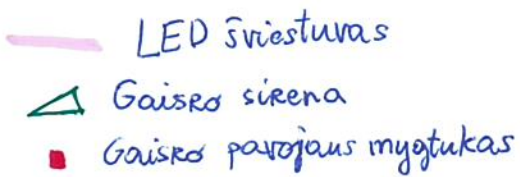 LED šviestuvas
Gaisro sirena
Gaisro pavojaus mygtukas